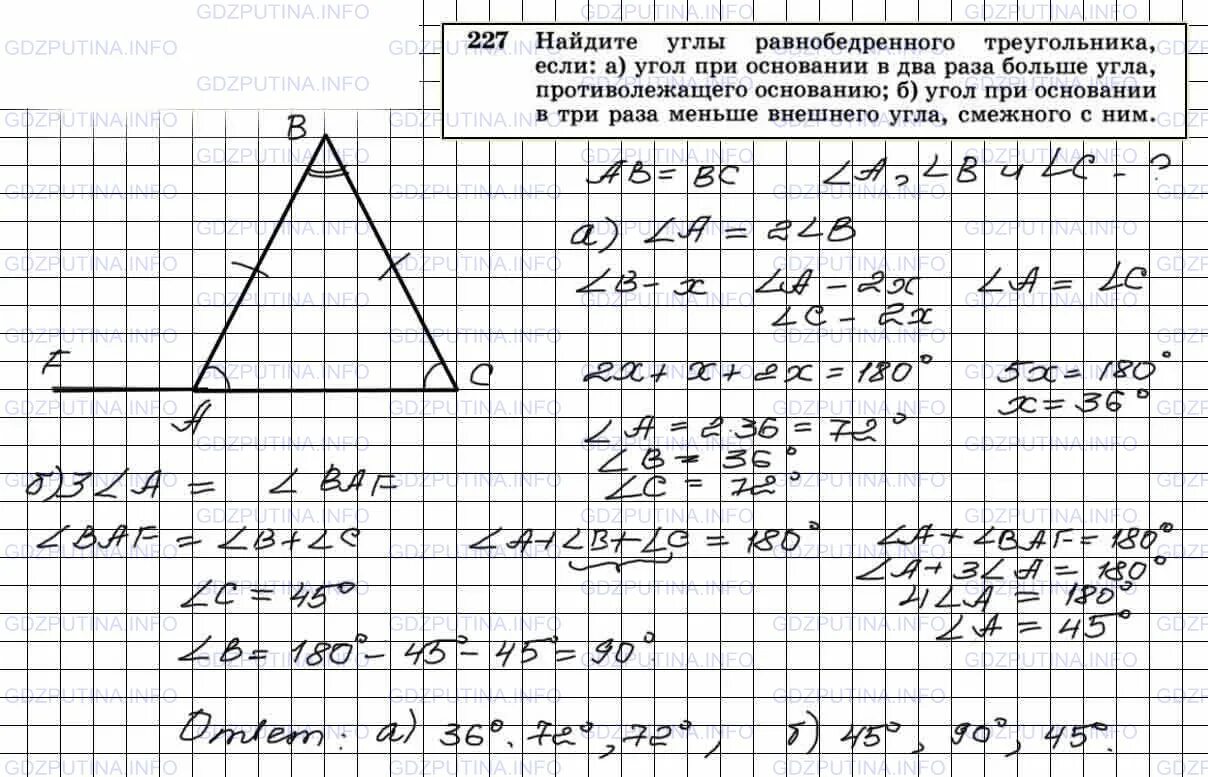 227 Найдите углы равнобедренного треугольника,
если: а) угол при основании в два раза больше угла,
противолежащего основанию; б) угол при основании
в три раза меньше внешнего угла, смежного с ним.
AB = BC ∠A, ∠B и ∠C - ?
а) ∠A = 2∠B
∠B - x ∠A - 2x ∠A = ∠C
∠C - 2x
2x + x + 2x = 180° 5x = 180°
x = 36°
∠A = 2·36 = 72°
∠B = 36°
∠C = 72°
B
F
A
C
б) 3∠A = ∠BAF
∠BAF = ∠B + ∠C ∠A + ∠B + ∠C = 180° ∠A + ∠BAF = 180°
∠A + 3∠A = 180°
∠C = 45° 4∠A = 180°
∠A = 45°
∠B = 180° - 45° - 45° = 90°
Ответ: а) 36°. 72°, 72°, б) 45°, 90°, 45°.
GDZPUTINA.INFO